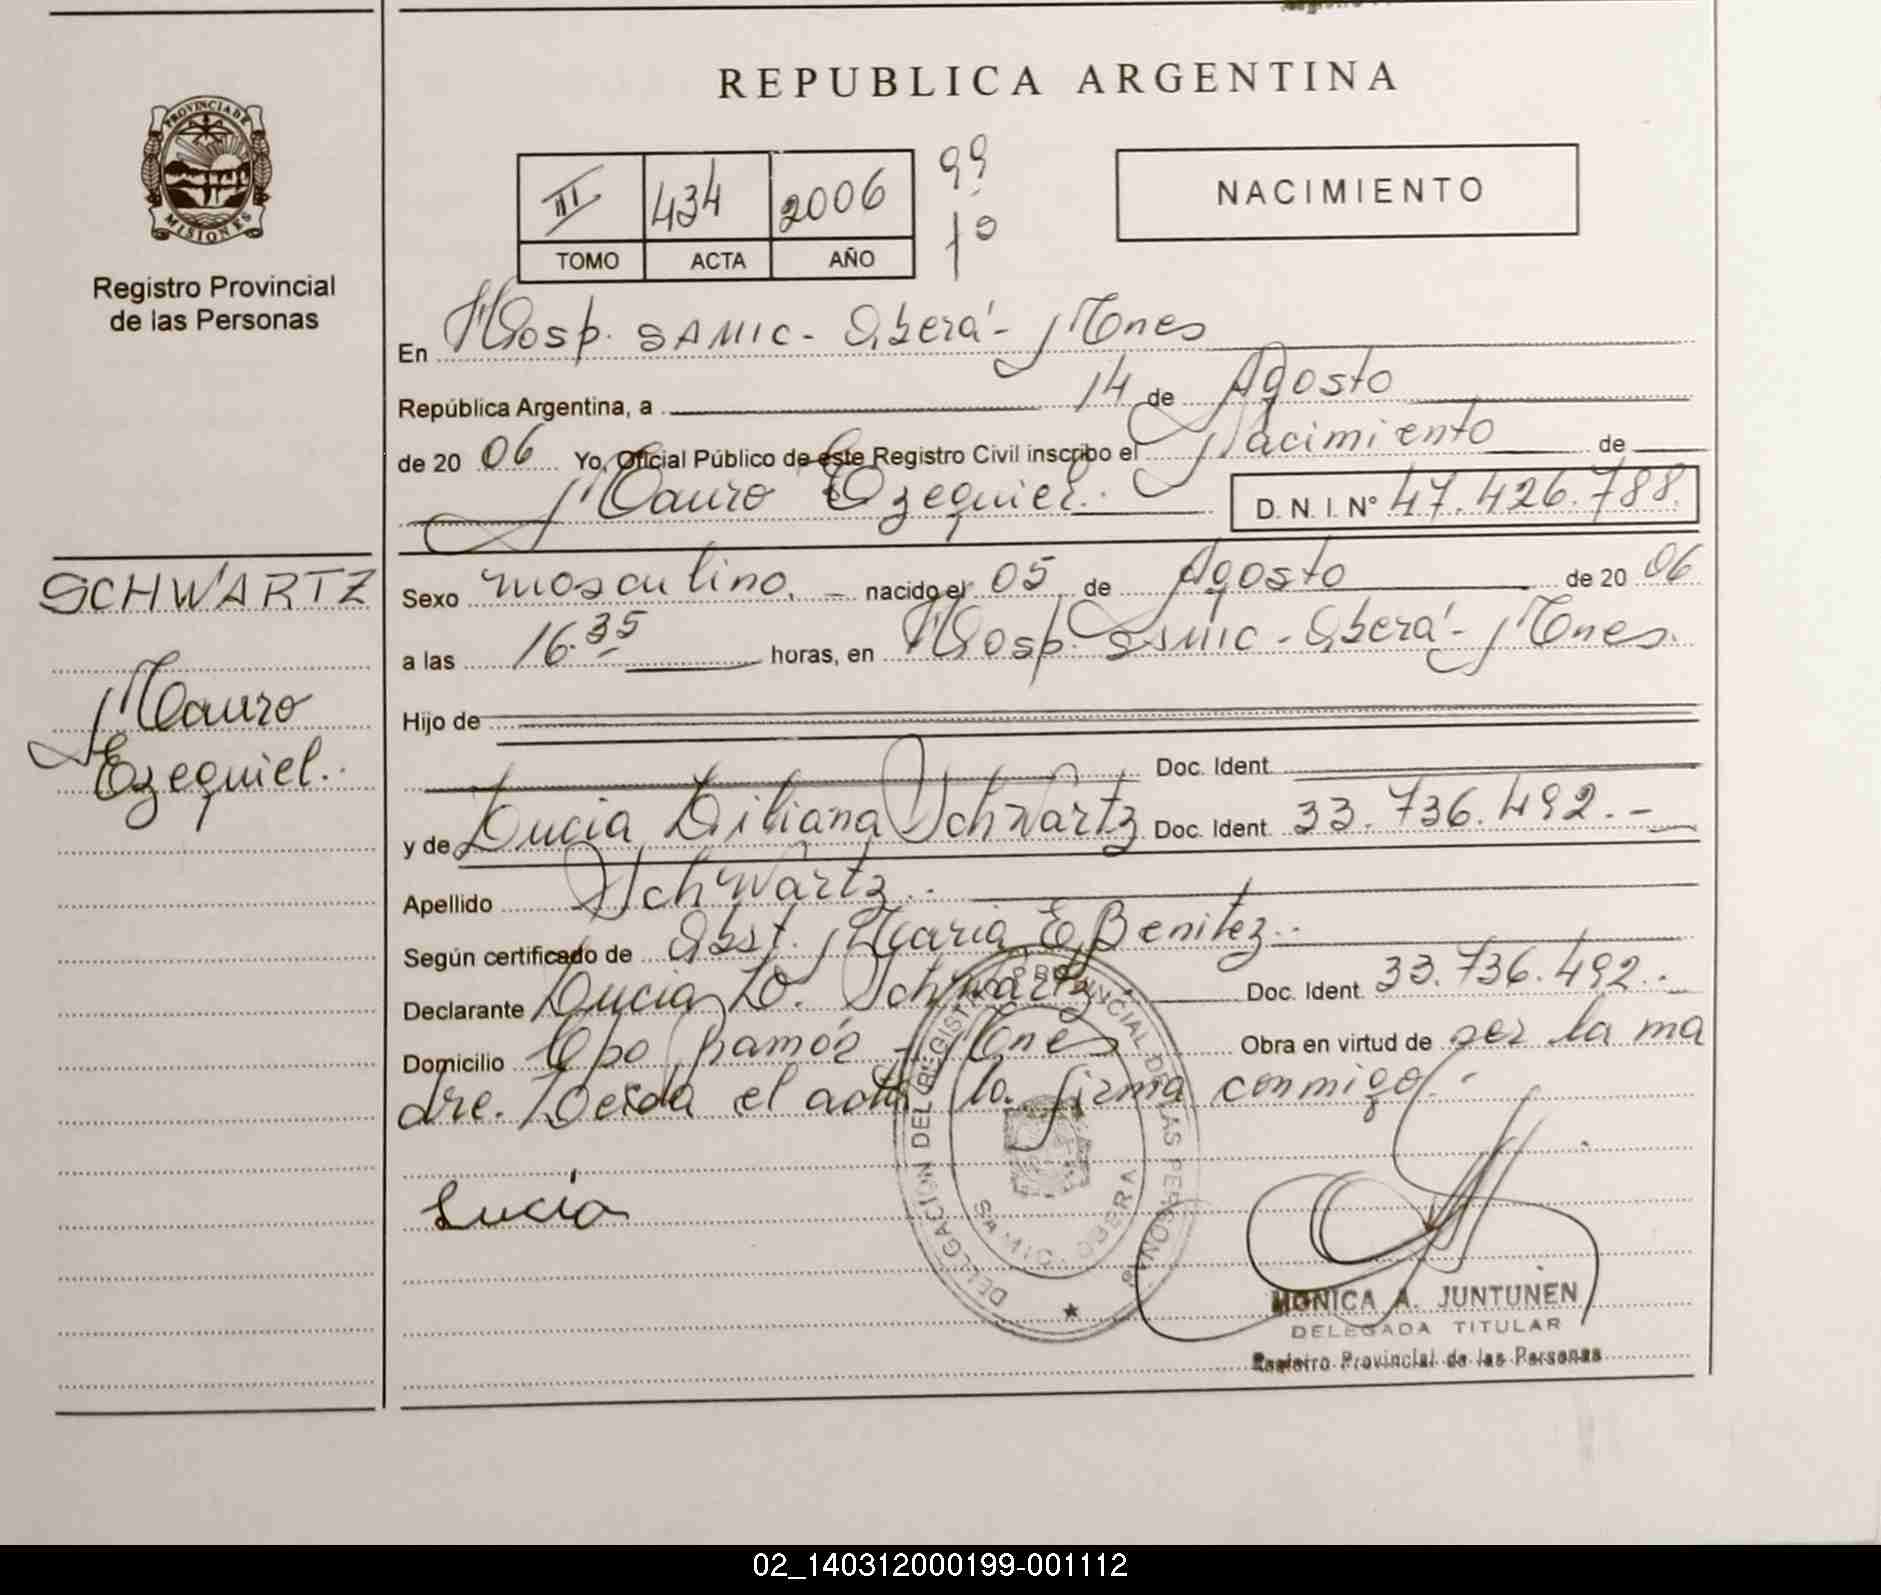 REPUBLICA ARGENTINA
PROVINCIA DE
MISIONES
Registro Provincial
de las Personas
III 434 2006 99
TOMO ACTA AÑO
NACIMIENTO
En Hosp. SAMIC - Oberá - Mnes
República Argentina, a 14 de Agosto
de 20 06 Yo, Oficial Público de este Registro Civil inscribo el Nacimiento de
Mauro Ezequiel. D. N. I. Nº 47.426.788.
SCHWARTZ
Mauro
Ezequiel..
Sexo masculino. nacido el 05 de Agosto de 20 06
a las 16.35 horas, en Hosp. SAMIC - Oberá - Mnes.
Hijo de
Doc. Ident.
y de Lucia Liliana Schwartz Doc. Ident. 33.736.492.-
Apellido Schwartz..
Según certificado de Obst. Maria E. Benitez..
Declarante Lucia L. Schwartz Doc. Ident. 33.736.492.-
Domicilio Cpo Ramón - Mnes Obra en virtud de ser la ma
dre. Leida el acta la firma conmigo.-
Lucia
DELEGACION DEL REGISTRO PROVINCIAL DE LAS PERSONAS
SAMIC - OBERA
MONICA A. JUNTUNEN
DELEGADA TITULAR
Registro Provincial de las Personas
02_140312000199-001112